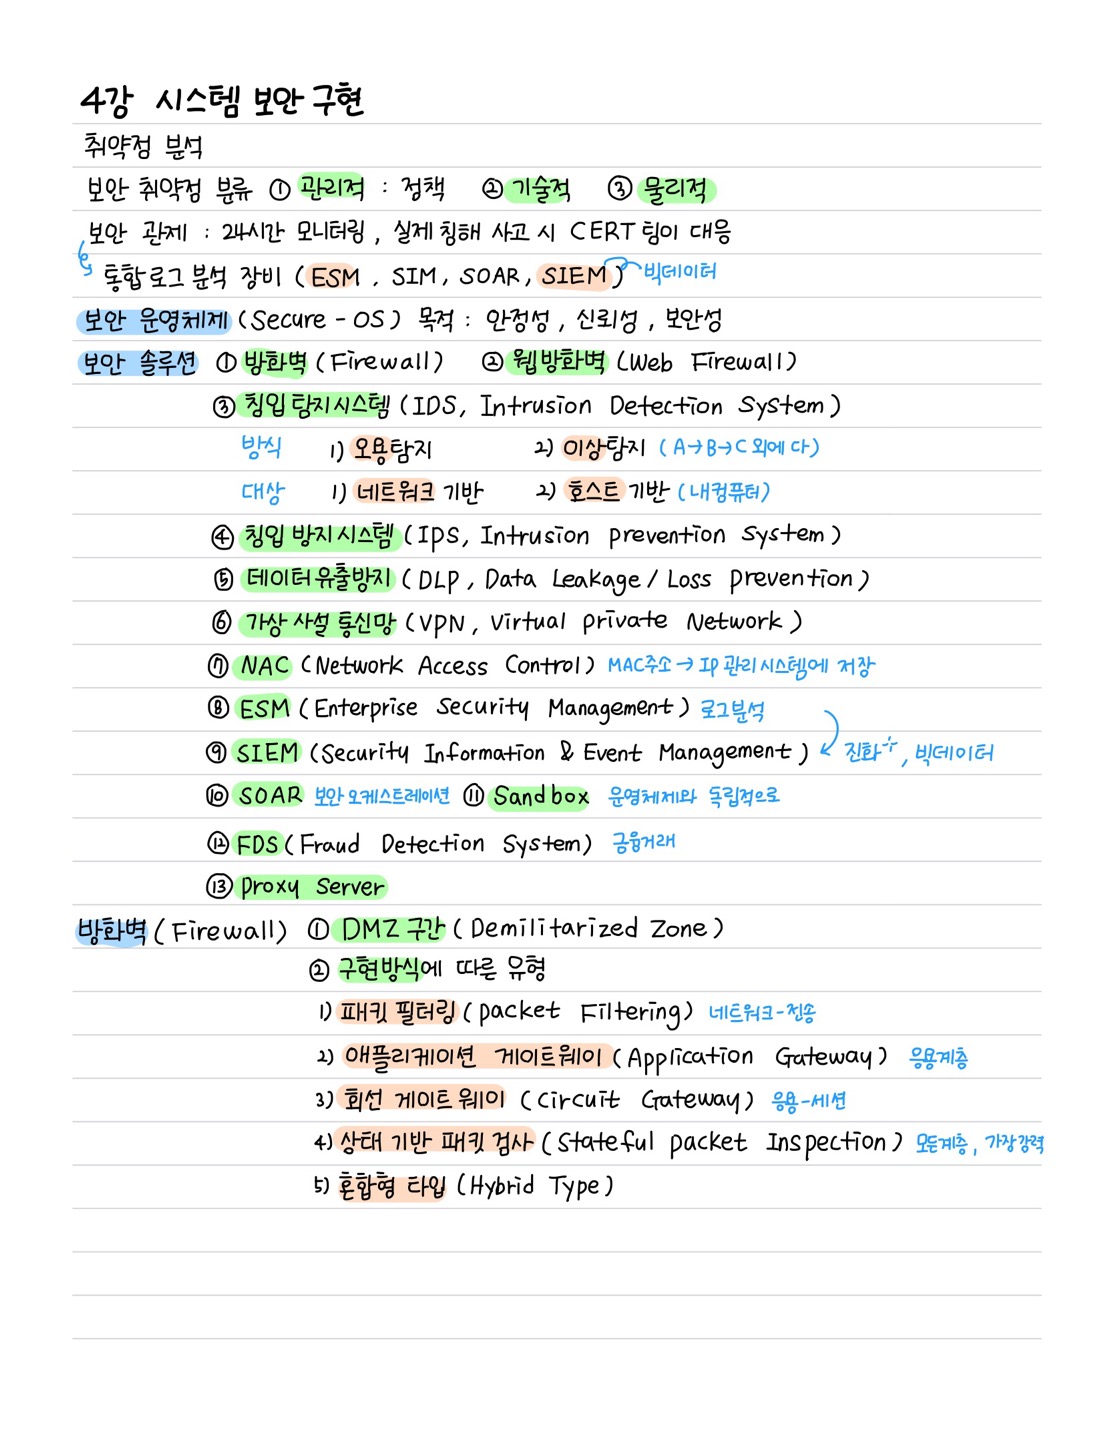 4강 시스템 보안 구현
취약점 분석
보안 취약점 분류 ① 관리적 : 정책 ② 기술적 ③ 물리적
보안 관제 : 24시간 모니터링, 실제 침해 사고 시 CERT팀이 대응
통합로그 분석 장비 (ESM, SIM, SOAR, SIEM) 빅데이터
보안 운영체제 (Secure-OS) 목적 : 안정성, 신뢰성, 보안성
보안 솔루션 ① 방화벽 (Firewall) ② 웹방화벽 (Web Firewall)
③ 침입탐지시스템 (IDS, Intrusion Detection System)
방식 1) 오용탐지 2) 이상탐지 (A→B→C 외에 다)
대상 1) 네트워크 기반 2) 호스트 기반 (내컴퓨터)
④ 침입 방지시스템 (IPS, Intrusion prevention System)
⑤ 데이터유출방지 (DLP, Data Leakage/Loss prevention)
⑥ 가상 사설 통신망 (VPN, Virtual private Network)
⑦ NAC (Network Access Control) MAC주소 → IP 관리시스템에 저장
⑧ ESM (Enterprise Security Management) 로그분석
⑨ SIEM (Security Information & Event Management) 진화, 빅데이터
⑩ SOAR 보안 오케스트레이션 ⑪ Sandbox 운영체제와 독립적으로
⑫ FDS (Fraud Detection System) 금융거래
⑬ proxy Server
방화벽 (Firewall) ① DMZ 구간 (Demilitarized Zone)
② 구현방식에 따른 유형
1) 패킷 필터링 (packet Filtering) 네트워크-전송
2) 애플리케이션 게이트웨이 (Application Gateway) 응용계층
3) 회선 게이트웨이 (Circuit Gateway) 응용-세션
4) 상태 기반 패킷 검사 (Stateful packet Inspection) 모든계층, 가장강력
5) 혼합형 타입 (Hybrid Type)